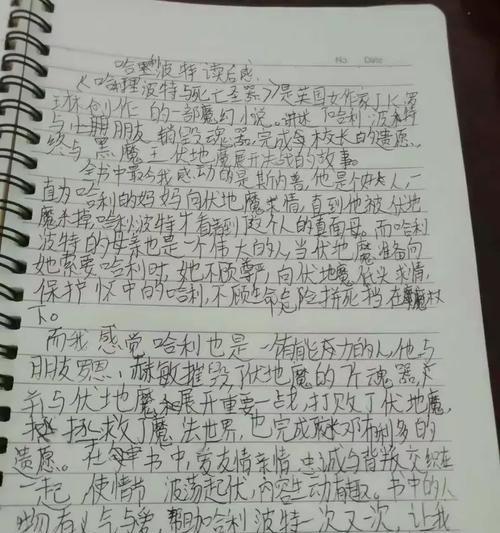 No. Date
哈利波特读后感
《哈理波特与死亡圣器》是英国女作家J.K.罗
琳创作的一部魔幻小说。讲述了哈利·波特
与小朋友 销毁魂器,完成 校长的遗愿。
终与黑魔王伏地魔展开决战的故事。
全书中最令我感动的是斯内普,他是个好人,一
直为哈利的妈妈向伏地魔求情,直到他被伏地
魔杀掉,哈利波特才看到这个人的真面母。而哈利
波特的母亲也是一个伟大的人,当伏地魔准备向
她索要哈利时,她不顾尊严,向伏地魔低头求情,
保护怀中的哈利,不顾生命危险拼死挡在魔杖
下。
而我感觉哈利也是一 有能力的人,他与
朋友罗恩、赫敏摧毁了伏地魔的 魂器,
并与伏地魔展开重要一战,打败了伏地魔,
拯救了魔法世界,也完成 邓布利多的
遗愿。在 书中,爱友情亲情 忠诚与背叛交织在
一起,使情节 波荡起伏,内容生动有趣。书中的人
物有义气与爱,帮助哈利波特一次又一次,让我